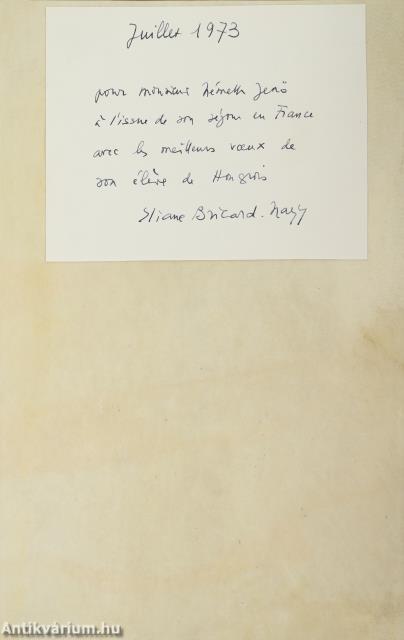 Juillet 1973
pour monsieur Németh Jenö
à l'issue de son séjour en France
avec les meilleurs vœux de
son élève de Hongrois
Eliane Bricard-Nagy
Antikvárium.hu